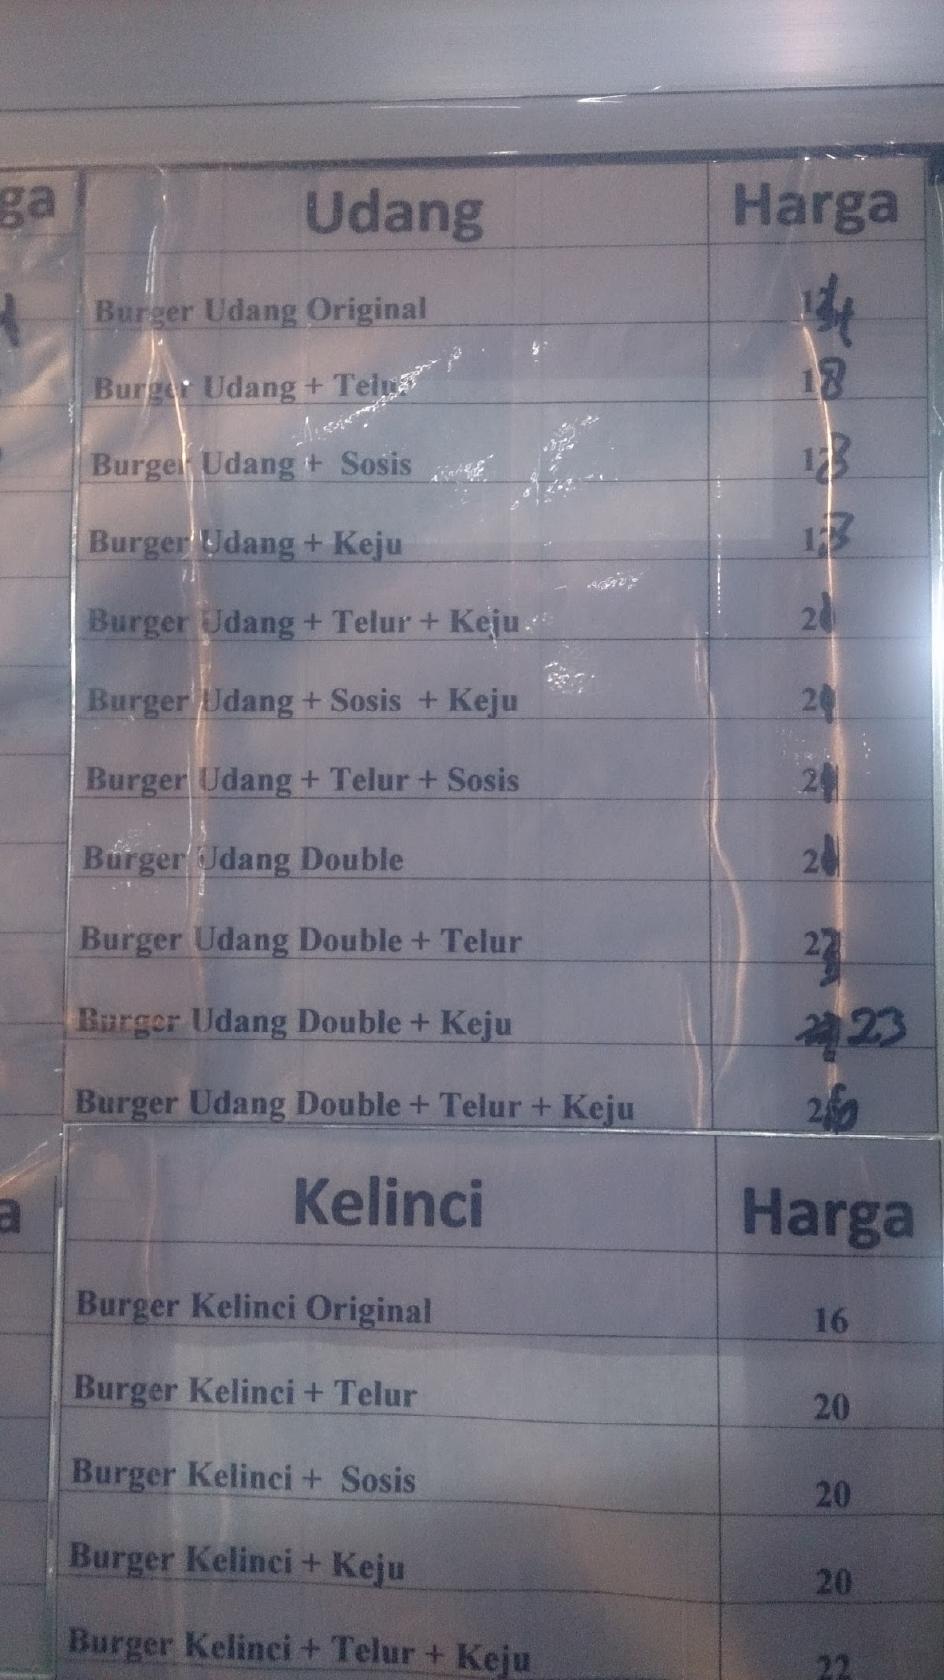 ga
Udang Harga
Burger Udang Original
Burger Udang + Telur 18
Burger Udang + Sosis 18
Burger Udang + Keju 18
Burger Udang + Telur + Keju 21
Burger Udang + Sosis + Keju 21
Burger Udang + Telur + Sosis 21
Burger Udang Double 21
Burger Udang Double + Telur 23
Burger Udang Double + Keju 23
Burger Udang Double + Telur + Keju
a
Kelinci Harga
Burger Kelinci Original 16
Burger Kelinci + Telur 20
Burger Kelinci + Sosis 20
Burger Kelinci + Keju 20
Burger Kelinci + Telur + Keju 22